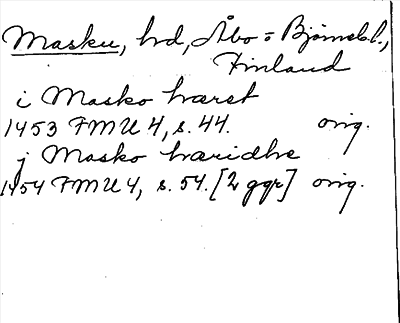 Masku, hd, Åbo = Björnebl.,
Finland
i Masko hæret
1453 FMU 4, s. 44. orig.
j Masko hæridhe
1454 FMU 4, s. 54. [2 ggr] orig.